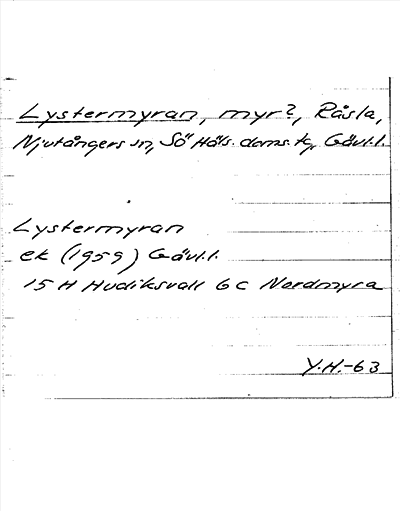 Lystermyran, myr?, Råsla,
Njutångers sn, Sö Häls. doms. tg, Gävl.l.
Lystermyran
ek (1959) Gävl.l.
15 H Hudiksvall 6 c Nordmyra
Y.H.-63